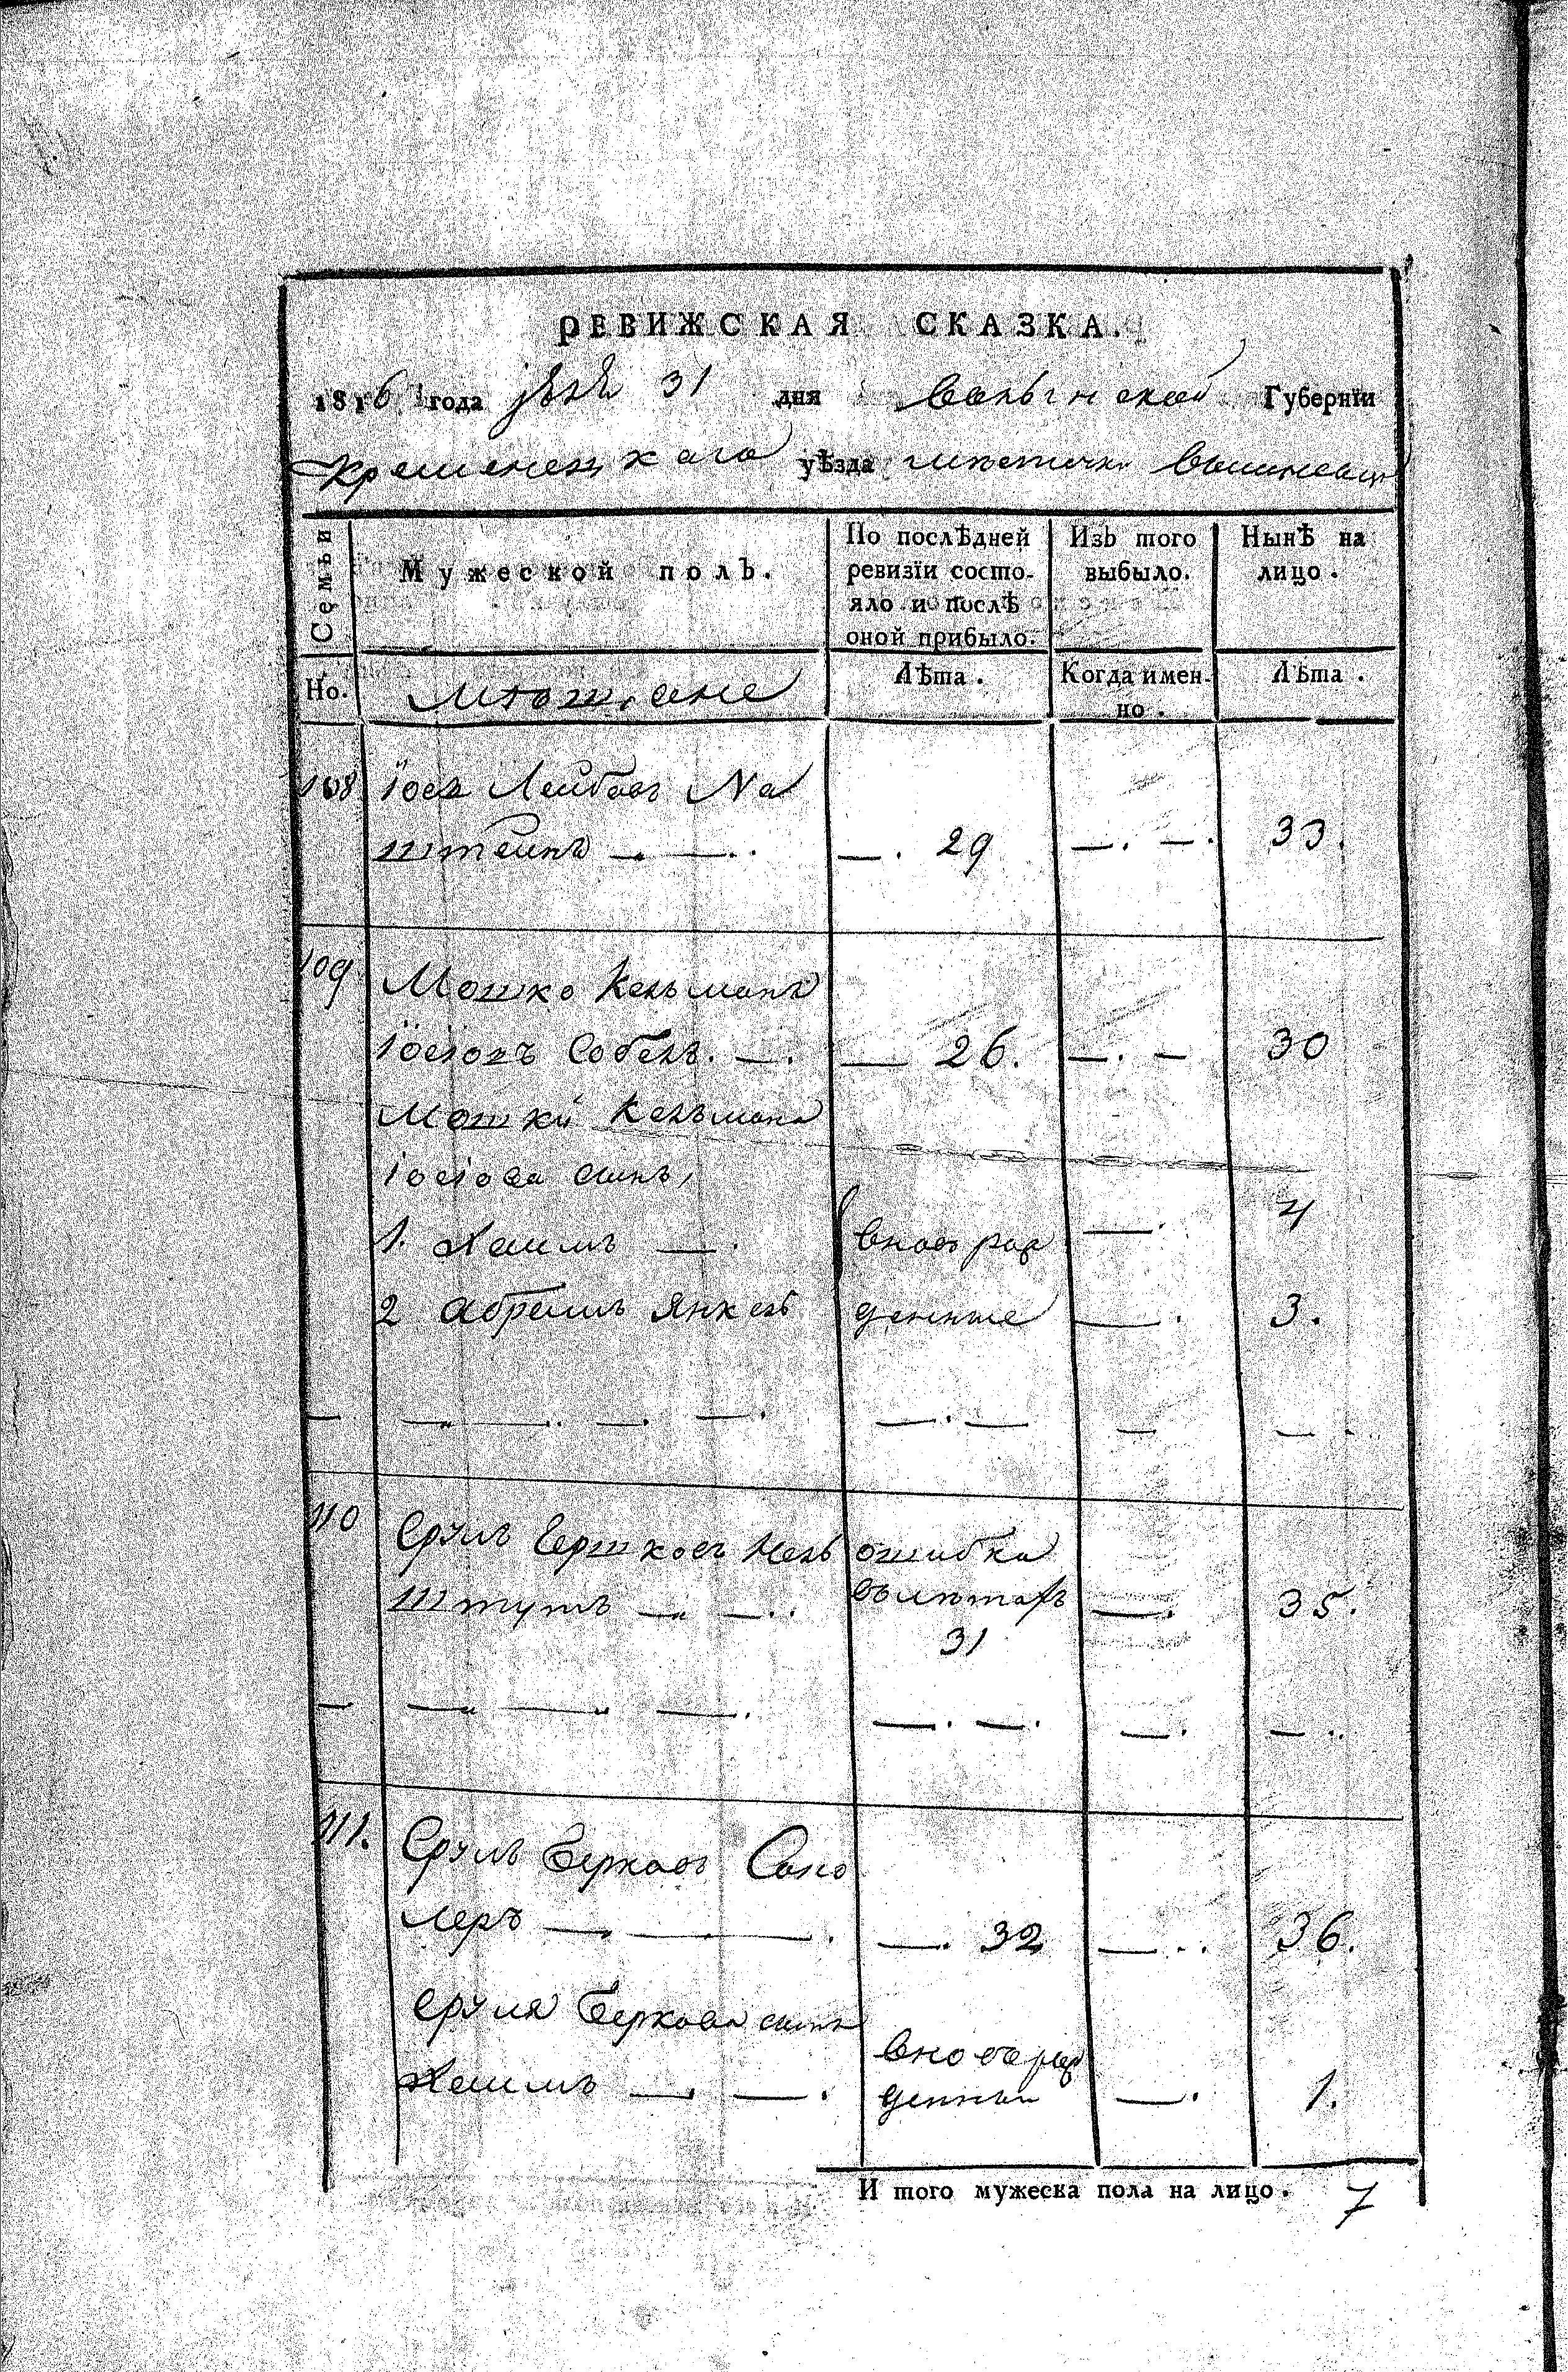 РЕВИЖСКАЯ СКАЗКА.
1816 года 31 дня Волынской Губернїи
Кременецкаго уѣзда мѣстечка Вишневца
Семьи
Мужеской полъ.
По послѣдней ревизїи состо-
яло и послѣ
оной прибыло.
Изъ того
выбыло.
Нынѣ на
лицо.
Но.
Мѣщане
Лѣта.
Когда имен-
но.
Лѣта.
108 Іосъ Лейбовъ На
штеинъ —. —.. —. 29 —. —. 33.
109 Мошко Кельманъ
Іосіовъ Собель. —. — 26. —. — 30
Мошки Кельмана
Іосіова сынъ,
1. Хаимъ —. вновь рож —. 4
2 Абрамъ Янкель денные —. 3.
110 Сруль Гершковъ ошибка
штумъ — —.. въ лѣтахъ —. 35.
31
111. Сруль Берковъ Сано
леръ — — —. —. 32 —.. 36.
Сруля Беркова сынъ
Хаимъ —. —. вновь рож
денный —. 1.
И того мужеска пола на лицо. 7